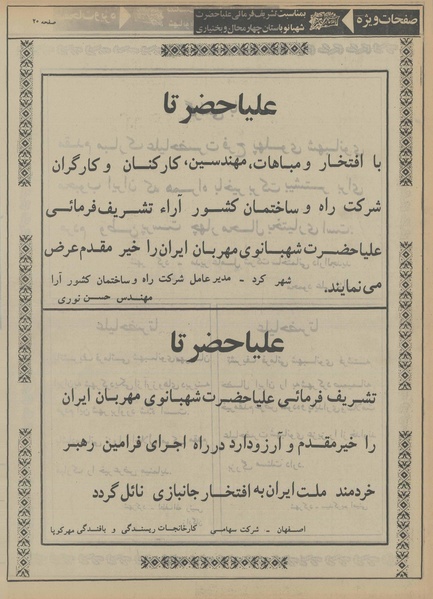 صفحات ویژه
بمناسبت تشریف فرمائی علیاحضرت
شهبانو باستان چهارمحال و بختیاری
صفحه ۲۰
علیاحضرتا
با افتخار و مباهات، مهندسین، کارکنان و کارگران
شرکت راه و ساختمان کشور آراء تشریف فرمائی
علیاحضرت شهبانوی مهربان ایران را خیر مقدم عرض
می نمایند.
شهر کرد - مدیر عامل شرکت راه و ساختمان کشور آرا
مهندس حسن نوری
علیاحضرتا
تشریف فرمائی علیاحضرت شهبانوی مهربان ایران
را خیرمقدم و آرزو دارد در راه اجرای فرامین رهبر
خردمند ملت ایران به افتخار جانبازی نائل گردد
اصفهان - شرکت سهامی کارخانجات ریسندگی و بافندگی مهرکوپا